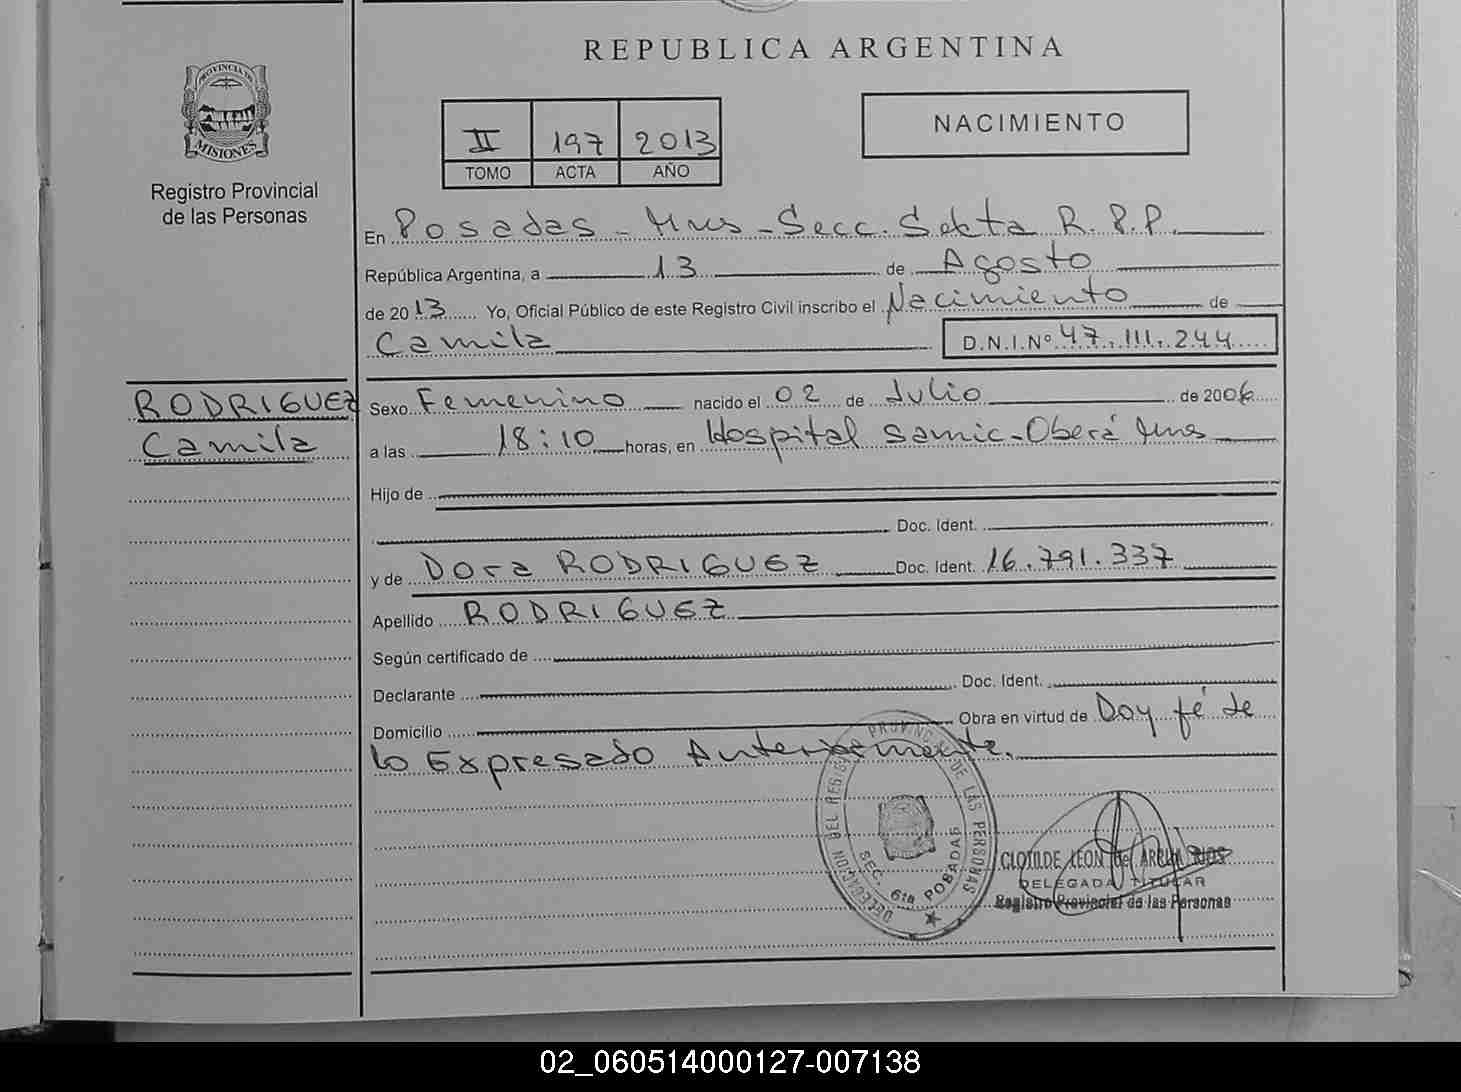 REPUBLICA ARGENTINA
PROVINCIA DE
MISIONES
Registro Provincial
de las Personas
II 197 2013
TOMO ACTA AÑO
NACIMIENTO
En Posadas - Mnes - Secc. Sexta R.P.P.
República Argentina, a 13 de Agosto
de 2013 Yo, Oficial Público de este Registro Civil inscribo el Nacimiento de
Camila D.N.I.Nº 47.111.244
RODRIGUEZ
Camila
Sexo Femenino nacido el 02 de Julio de 2006
a las 18:10 horas, en Hospital Samic - Oberá Mnes
Hijo de
Doc. Ident.
y de Dora RODRIGUEZ Doc. Ident. 16.791.337
Apellido RODRIGUEZ
Según certificado de
Declarante Doc. Ident.
Domicilio Obra en virtud de Doy fé de
lo Expresado Anteriormente.
DELEGACION DEL REGISTRO PROVINCIAL DE LAS PERSONAS
SEC. 6ta POSADAS
CLOTILDE LEON de ARRUA RIOS
DELEGADA TITULAR
Registro Provincial de las Personas
02_060514000127-007138